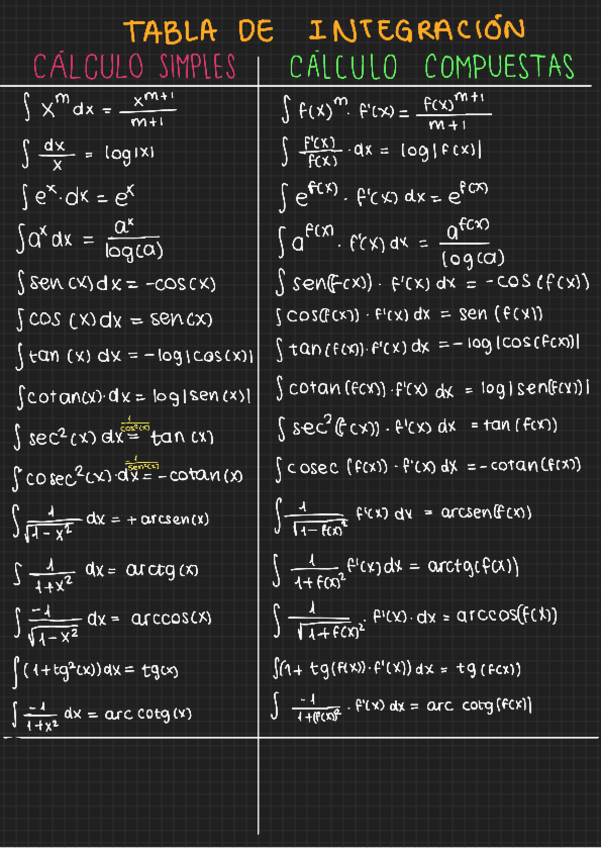 TABLA DE INTEGRACIÓN
CÁLCULO SIMPLES
∫ x^m dx = x^(m+1)/(m+1)
∫ dx/x = log|x|
∫ e^x · dx = e^x
∫ a^x dx = a^x/log(a)
∫ sen (x) dx = -cos(x)
∫ cos (x) dx = sen(x)
∫ tan (x) dx = -log|cos(x)|
∫ cotan(x)·dx = log|sen(x)|
∫ sec²(x) dx = tan (x) 1/cos²(x)
∫ cosec²(x)·dx = -cotan(x) 1/sen²(x)
∫ 1/√(1-x²) dx = + arcsen(x)
∫ 1/(1+x²) dx = arctg(x)
∫ -1/√(1-x²) dx = arccos(x)
∫ (1+tg²(x)) dx = tg(x)
∫ -1/(1+x²) dx = arc cotg(x)
CÁLCULO COMPUESTAS
∫ f(x)^m · f'(x) = f(x)^(m+1)/(m+1)
∫ f'(x)/f(x) · dx = log|f(x)|
∫ e^f(x) · f'(x) dx = e^f(x)
∫ a^f(x) · f'(x) dx = a^f(x)/log(a)
∫ sen(f(x)) · f'(x) dx = -cos(f(x))
∫ cos(f(x)) · f'(x) dx = sen (f(x))
∫ tan(f(x))·f'(x) dx = -log|cos(f(x))|
∫ cotan(f(x))·f'(x) dx = log|sen(f(x))|
∫ sec²(f(x)) · f'(x) dx = tan(f(x))
∫ cosec (f(x)) · f'(x) dx = -cotan(f(x))
∫ 1/√(1-f(x)²) f'(x) dx = arcsen(f(x))
∫ 1/(1+f(x)²) f'(x) dx = arctg(f(x))
∫ 1/√(1+f(x)²) · f'(x)·dx = arccos(f(x))
∫(1+ tg(f(x))·f'(x)) dx = tg(f(x))
∫ -1/(1+(f(x))²) · f'(x) dx = arc cotg(f(x))